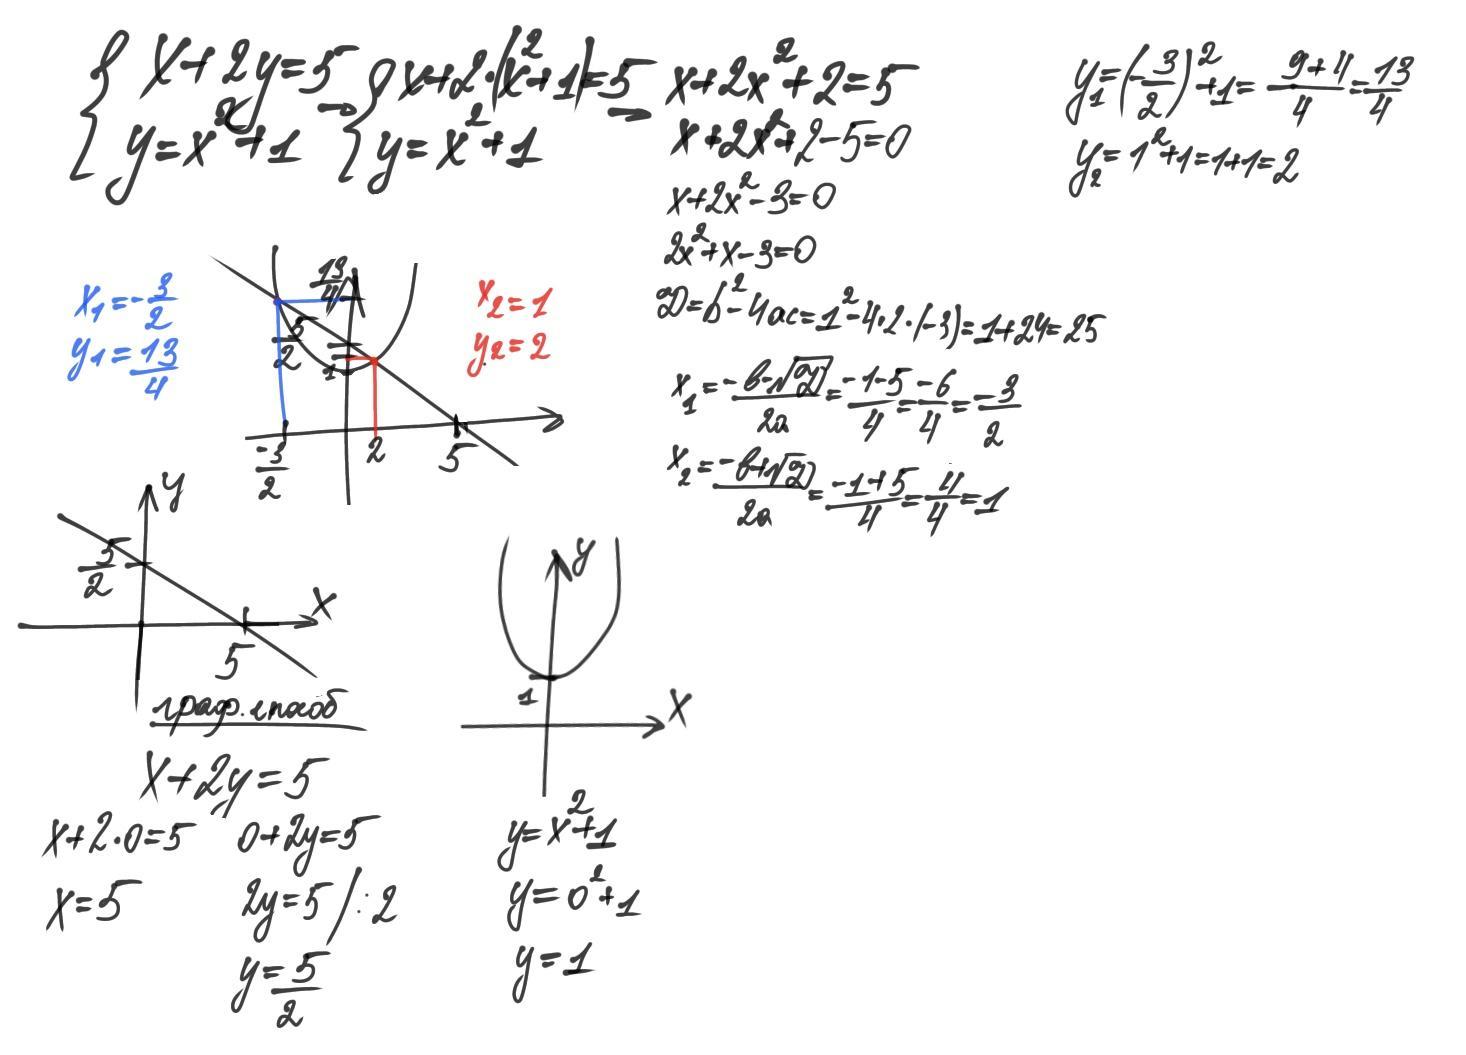 { x+2y=5 → { x+2·(x²+1)=5 →
y=x²+1 y=x²+1
x+2x²+2=5
x+2x²+2-5=0
x+2x²-3=0
2x²+x-3=0
D=b²-4ac=1²-4·2·(-3)=1+24=25
x₁=(-b-√D)/2a=(-1-5)/4=-6/4=-3/2
x₂=(-b+√D)/2a=(-1+5)/4=4/4=1
y₁=(-3/2)²+1=(9+4)/4=13/4
y₂=1²+1=1+1=2
x₁=-3/2
y₁=13/4
13/4
5/2
1
-3/2
2
5
x₂=1
y₂=2
y
5/2
x
5
граф. способ
x+2y=5
x+2·0=5
x=5
0+2y=5
2y=5 /:2
y=5/2
y
1
x
y=x²+1
y=0²+1
y=1